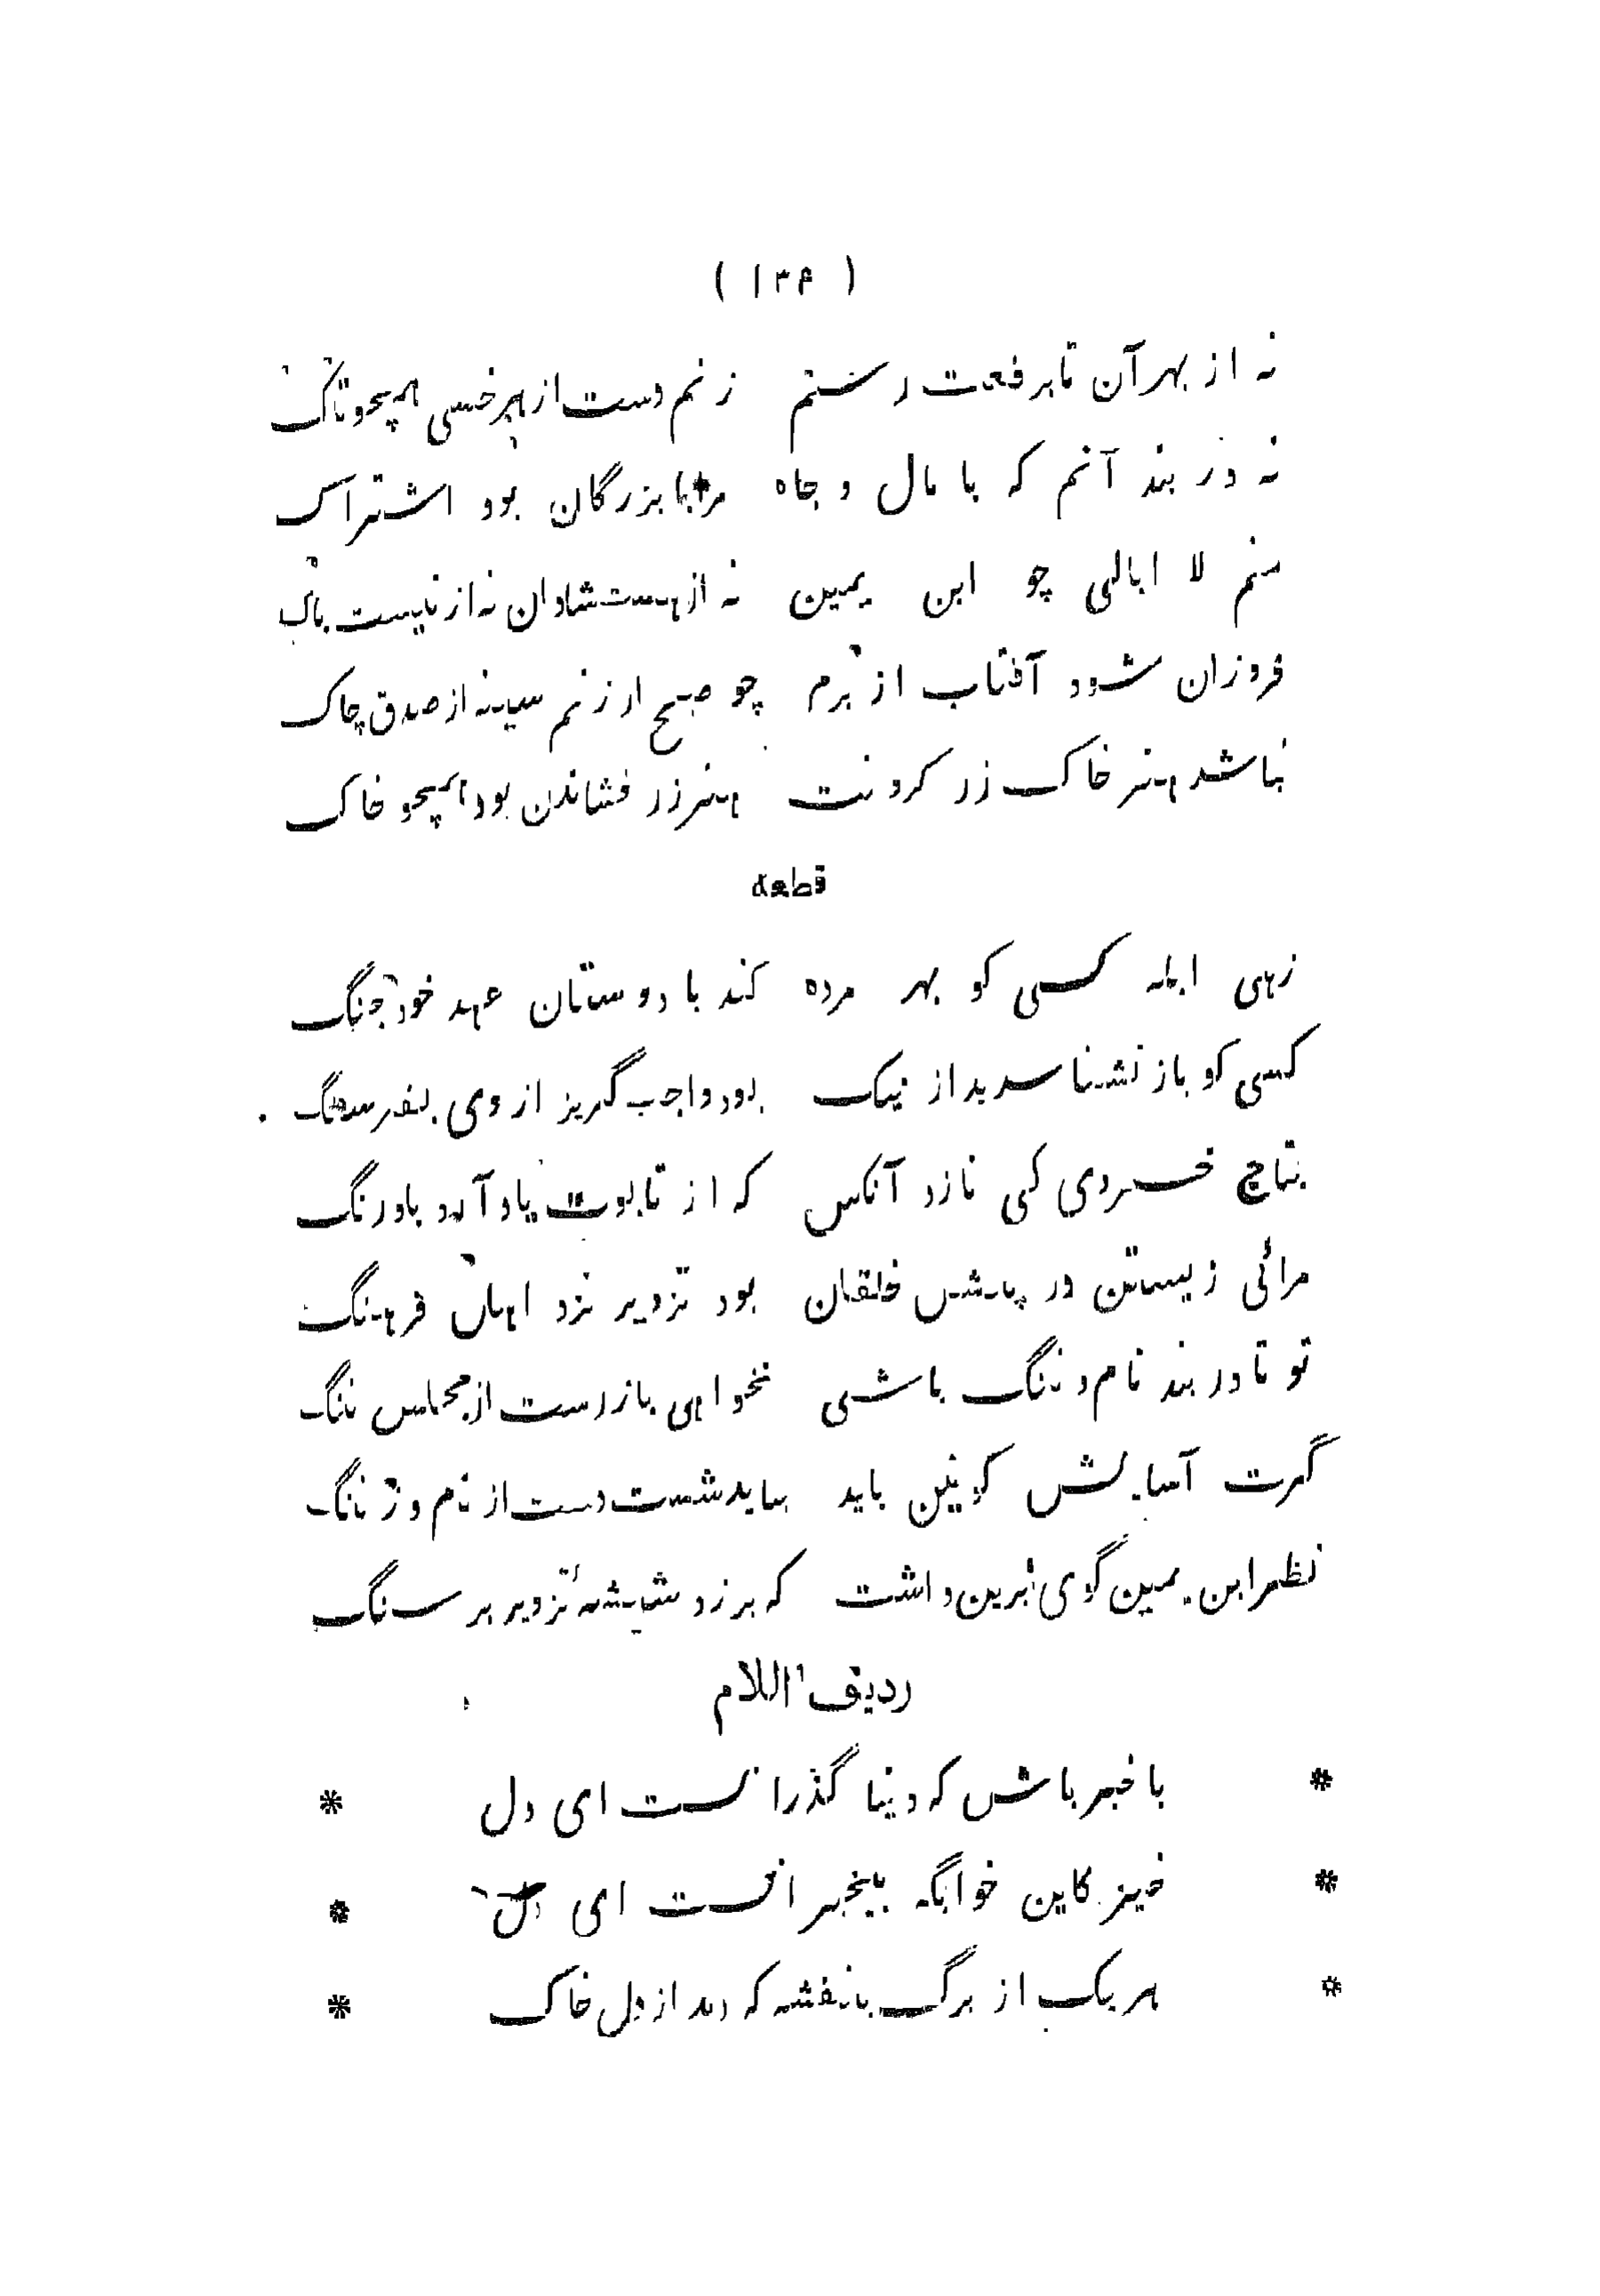 ( ۱۳۶ )
نه از بهر آن تا برفعت رسم زنم دست از هر خسی همچو تاک
نه در بند آنم که با مال و جاه مرا با بزرگان بود اشتراک
منم لا ابالی چو ابن یمین نه از هست شادان نه از نیست باک
فروزان شود آفتاب از برم چو صبح ار زنم سینه از صدق چاک
نباشد هنر خاک زر کردنت هنر زر فشاندن بود همچو خاک
قطعه
زهی ابله کسی کو بهر مرده کند با دوستان عهد خود جنگ
کسی کو باز نشناسد بد از نیک بود واجب گریز از وی بفرسنگ
بتاج خسروی کی نازد آنکس که از تابوت یاد آرد باورنگ
مرائی زیستن در پیش خلقان بود تزویر نزد اهل فرهنگ
تو تا در بند نام و ننگ باشی نخواهی باز رست از مجلس ننگ
گرت آسایش کونین باید بباید شست دست از نام وز ننگ
نظر ابن یمین گوی برین داشت که بر زد شیشهٔ تزویر بر سنگ
ردیف اللام
* با خبر باش که دنیا گذرانست ای دل *
* خیز کاین خوابگه بیخبرانست ای دل *
* هر یک از برگ بنفشه که دمد از دل خاک *